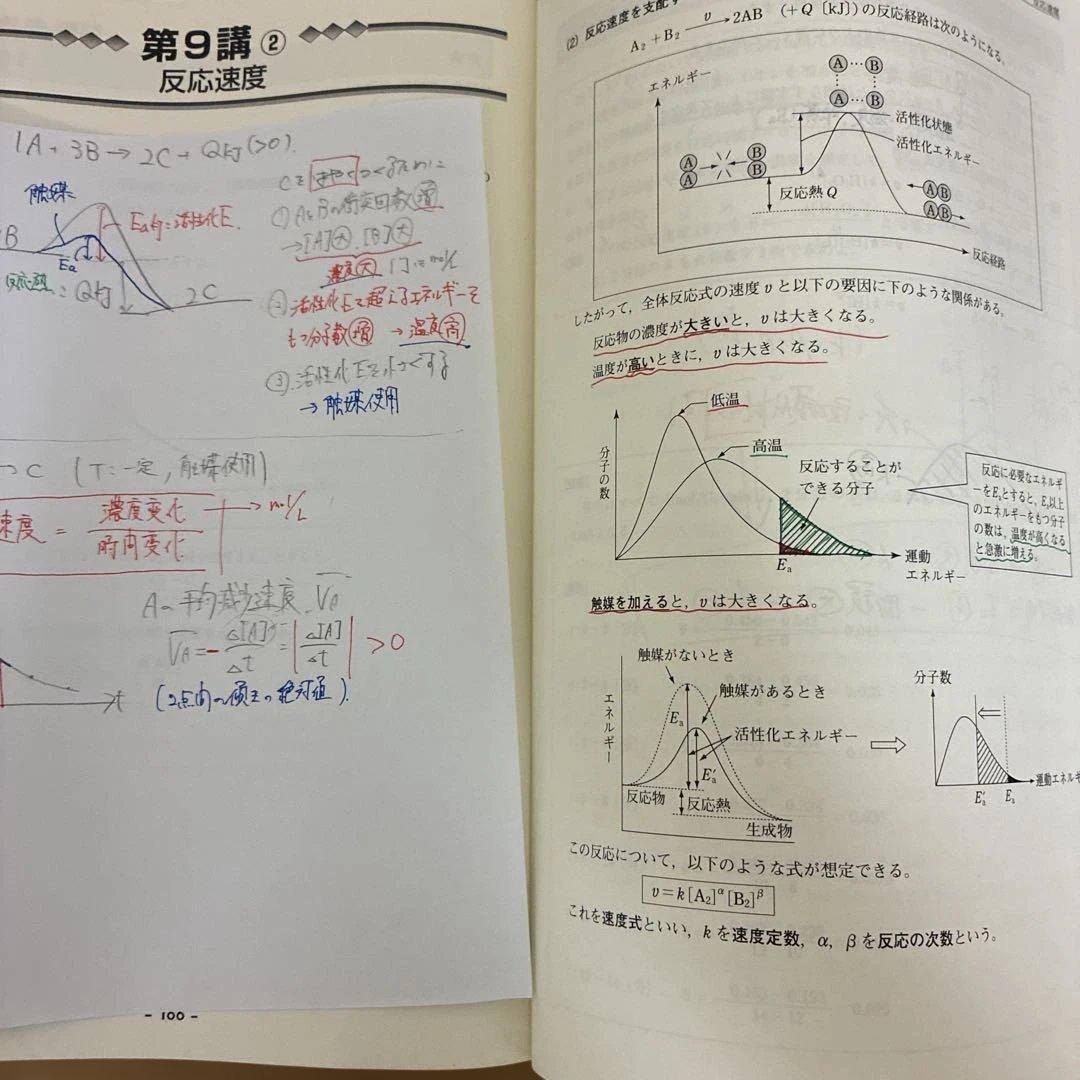 第9講 ②
反応速度
1A + 3B → 2C + QkJ (>0).
触媒
EakJ = 活性化E.
Ea
反応熱
= QkJ
2C
Cを はやく つくるために
① AとBの衝突回数 増
→ [A]大, [B]大
濃度 大 [ ] = mol/L
② 活性化Eを超えるエネルギーを
もつ分子数 増 → 温度 高
③ 活性化Eを小さくする
→ 触媒使用
→ C (T = 一定, 触媒使用)
速度 = 濃度変化 / 時間変化
→ mol/L
Aの平均減少速度 V̄A
V̄A = - Δ[A]/Δt = |Δ[A]/Δt| > 0
(2点間の傾きの絶対値).
t
- 100 -
(2) 反応速度を支配す
A₂ + B₂ —v→ 2AB (+Q〔kJ〕) の反応経路は次のようになる。
エネルギー
A … B
A … B
活性化状態
活性化エネルギー
A A
B B
反応熱 Q
AB
AB
反応経路
したがって,全体反応式の速度 v と以下の要因に下のような関係がある。
反応物の濃度が大きいと,v は大きくなる。
温度が高いときに,v は大きくなる。
低温
高温
分子の数
反応することが
できる分子
Ea
運動
エネルギー
反応に必要なエネルギ
ーをEaとすると,Ea以上
のエネルギーをもつ分子
の数は,温度が高くなる
と急激に増える。
触媒を加えると,v は大きくなる。
触媒がないとき
触媒があるとき
エネルギー
Ea
活性化エネルギー
E′a
反応物
反応熱
生成物
分子数
E′a Ea
運動エネルギ
この反応について,以下のような式が想定できる。
v = k[A₂]^α[B₂]^β
これを速度式といい,k を速度定数,α,β を反応の次数という。